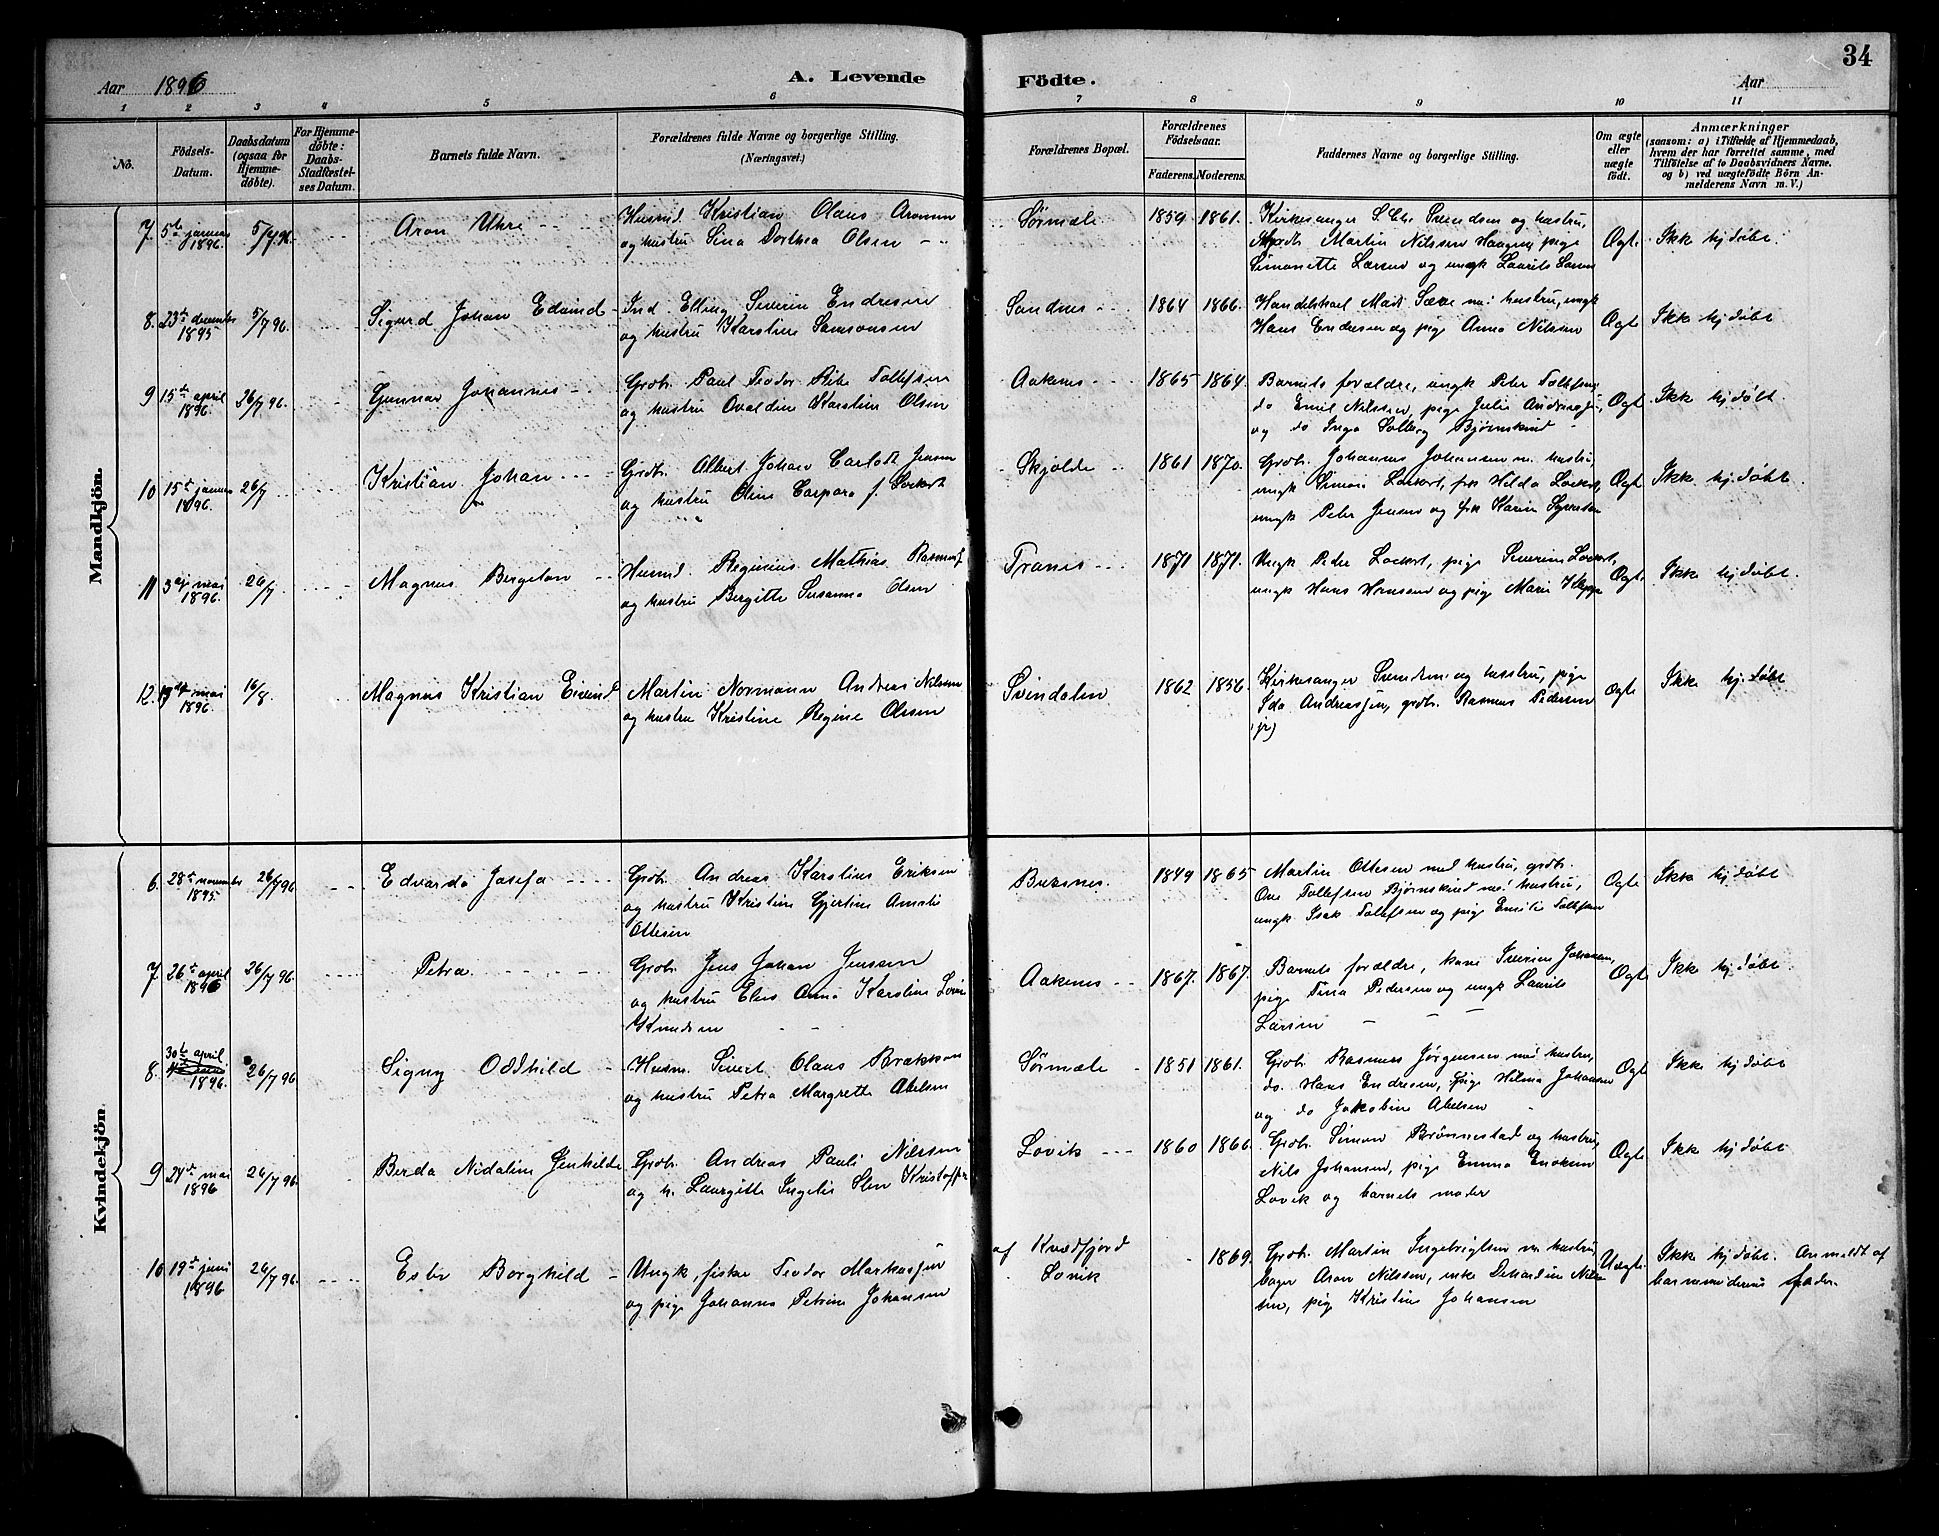 34
Aar 1896
A. Levende Födte.
Aar
1 2 3 4 5 6 7 8 9 10 11
No.
Födsels-Datum.
Daabsdatum (ogsaa for Hjemme-döbte).
For Hjemme-döbte: Daabs-Stadfæstel-ses Datum.
Barnets fulde Navn.
Forældrenes fulde Navne og borgerlige Stilling.
(Næringsvei.)
Forældrenes Bopæl.
Forældrenes Födselsaar.
Faderens. Moderens.
Faddernes Navne og borgerlige Stilling.
Om ægte eller uægte födt.
Anmærkninger
(saasom: a) i Tilfælde af Hjemmedaab, hvem der har forrettet samme, med Tilföielse af to Daabsvidners Navne, og b) ved uægtefödte Börn An-melderens Navn m. V.)
Mandkjön.
7. 5te januar 1896. 5/7.96. Aron Uhre
Husmd. Kristian Olaus Aronsen
og hustru Sina Dorthea Olsen
Sørmæle 1859 1861.
Kirkesanger S. Chr. Svendsen og hustru,
Martin Nilssen Haagnes, pige
Simonette Larsen og ungk Laurits Larsen
Ægte Ikke hj.døbt.
8. 23de december 1895 5/7 96. Sigurd Johan Edvind
Ind. Elling Severin Endresen
og hustru Karstine Samsonsen
Sandnes 1864 1866.
Handelskarl Mads Sæve m. hustru, ungk
Hans Endresen og pige Anna Nilsen
Ægte Ikke hj.døbt
9 15de april 1896. 26/7 96. Gunnar Johannes
Grdbr. Paul Teodor Tollefsen
og hustru Ovaldine Karstine Olsen
Aaknes 1865 1864.
Barnets forældre, ungk Peter Tollefsen,
do Emil Nilssen, pige Julie
og do Inga Solberg Bjørnskind
Ægte Ikke hj.døbt.
10 15de januar 1896. 26/7 Kristian Johan
Grdbr. Albert Johan Carlodt Jensen
og hustru Oline Caspara f. Lockert
Skjolde 1861 1870.
Grdbr. Johannes Johansen m. hustru,
ungk Simon Lockert, frk Hilda Lockert,
ungk Peter Jensen og frk Karin
Ægte Ikke hj.døbt.
11 3die mai 1896. 26/7 Magnus Bergeton
Husmd. Reginius Mathias
og hustru Bergitte Susanna Olsen
Tranes 1871 1871.
Ungk Peder Lockert, pige Severine Lockert,
ungk Hans Hansen og pige Marie
Ægte Ikke hj.døbt.
12. mai 1896. 16/8. Magnus Kristian Eivind
Martin Normann Andreas Nilsen
og hustru Kristine Regine Olsen
Svindalen 1862 1856.
Kirkesanger Svendsen og hustru, pige
Ida Andreasjen, grdbr. Rasmus Pedersen
jr)
Ægte Ikke hj.døbt
Kvindekjön.
6. 28de november 1895. 26/7 96 Edvarda Josefa
Grdbr. Andreas Karstius Eriksen
og hustru Kristine Gjertine Amalie
Ottesen
Buksnes. 1849 1865
Martin Ottesen med hustru, grdbr.
Ove Tollefsen Bjørnskind med hustru,
ungk Isak Tollefsen og pige Emilie Tollefsen
Ægte Ikke hj.døbt
7. 26de april 1896 26/7 96. Petra
Grdbr. Jens Johan Jensen
og hustru Elen Anna Karstine Lovise
Knudsen
Aaknes 1867. 1867.
Barnets forældre, kone Severine Johansen,
pige Tina Pedersen og ungk Laurits
Larsen
Ægte Ikke hj.døbt.
8. 30te april 1896. 26/7 96 Signy Oddhild
Husm. Sivert Olaus Brækkan
og hustru Petra Margrethe Abelsen
Sørmæle 1851 1861.
Grdbr. Rasmus Jørgensen med hustru,
do. Hans Endresen, pige Hilma Johansen
og do Jakobine Abelsen
Ægte Ikke hj.døbt
9 24de mai 1896 26/7 96. Berda Nidaline Jenhilde
Grdbr. Andreas Pauli Nilssen
og h. Laurgitte Ingelis Elen
Lovik 1860 1866.
Grdbr. Simon Brønnestad og hustru,
Nils Johansen, pige Emma Enoksen
Lovik og barnets moder
Ægte Ikke hj.døbt
10 19de juni 1896 26/7 96. Ester Borghild
Ungk, fisker Teodor Markusjen
og pige Johanna Petrine Johansen
af Kvædfjord
Lovik
1869.
Grdbr. Martin Ingebrigtsen m. hustru,
bager Aron Nilssen, enke
pige Kristine Johansen
Uægte Ikke hj.døbt. Anmeldt af
barnemoderens fader.